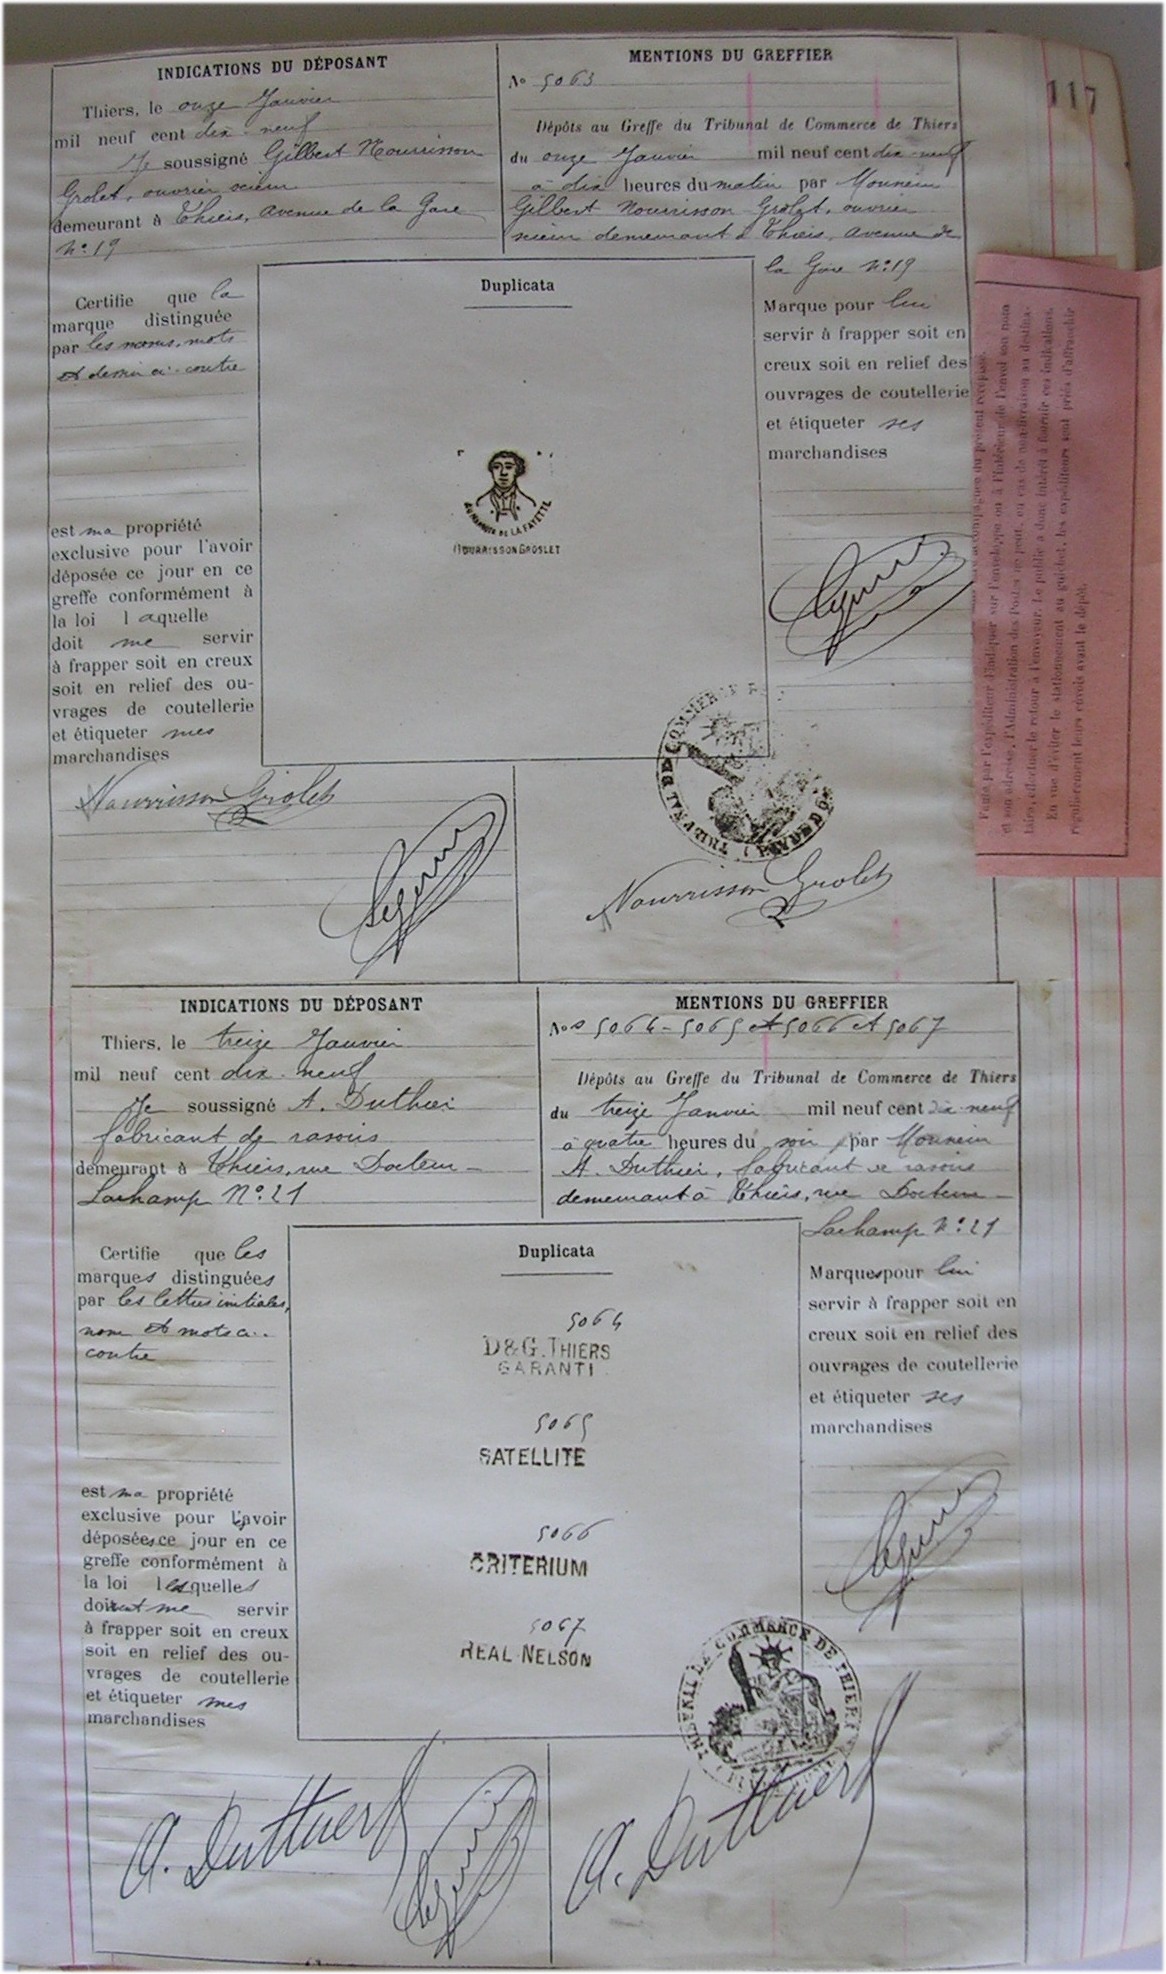 117
INDICATIONS DU DÉPOSANT
Thiers, le onze Janvier
mil neuf cent dix-neuf
Je soussigné Gilbert Nourrisson
Grolet, ouvrier scieur
demeurant à Thiers, avenue de la Gare
N° 19
MENTIONS DU GREFFIER
N° 5063
Dépôts au Greffe du Tribunal de Commerce de Thiers
du onze Janvier mil neuf cent dix-neuf
à dix heures du matin par Monsieur
Gilbert Nourrisson Grolet, ouvrier
scieur demeurant à Thiers, avenue de
la Gare N° 19
Certifie que la
marque distinguée
par les noms, mots
et dessin ci-contre
est ma propriété
exclusive pour l'avoir
déposée ce jour en ce
greffe conformément à
la loi laquelle
doit me servir
à frapper soit en creux
soit en relief des ou-
vrages de coutellerie
et étiqueter mes
marchandises
Duplicata
AU MARQUIS DE LA FAYETTE
NOURRISSON GROSLET
Marque pour lui
servir à frapper soit en
creux soit en relief des
ouvrages de coutellerie
et étiqueter ses
marchandises
Nourrisson Grolet
TRIBUNAL DE COMMERCE
Nourrisson Grolet
Faute par l'expéditeur d'indiquer sur l'enveloppe ou à l'intérieur de l'envoi son nom
et son adresse, l'Administration des Postes ne peut, en cas de non-livraison au destina-
taire, effectuer le retour à l'envoyeur. Le public a donc intérêt à fournir ces indications.
En vue d'éviter le stationnement au guichet, les expéditeurs sont priés d'affranchir
régulièrement leurs envois avant le dépôt.
INDICATIONS DU DÉPOSANT
Thiers, le treize Janvier
mil neuf cent dix-neuf
Je soussigné A. Duthier
fabricant de rasoirs
demeurant à Thiers, rue Docteur-
Lachamp N° 21
MENTIONS DU GREFFIER
Nos 5064-5065 et 5066 et 5067
Dépôts au Greffe du Tribunal de Commerce de Thiers
du treize Janvier mil neuf cent dix-neuf
à quatre heures du soir par Monsieur
A. Duthier, fabricant de rasoirs
demeurant à Thiers, rue Docteur-
Lachamp N° 21
Certifie que les
marques distinguées
par les lettres initiales,
nom et mots ci-
contre
est ma propriété
exclusive pour les avoir
déposées ce jour en ce
greffe conformément à
la loi lesquelles
doivent me servir
à frapper soit en creux
soit en relief des ou-
vrages de coutellerie
et étiqueter mes
marchandises
Duplicata
5064
D&G. THIERS
GARANTI
5065
SATELLITE
5066
CRITERIUM
5067
REAL NELSON
Marques pour lui
servir à frapper soit en
creux soit en relief des
ouvrages de coutellerie
et étiqueter ses
marchandises
TRIBUNAL DE COMMERCE DE THIERS
A. Duthier
A. Duthier